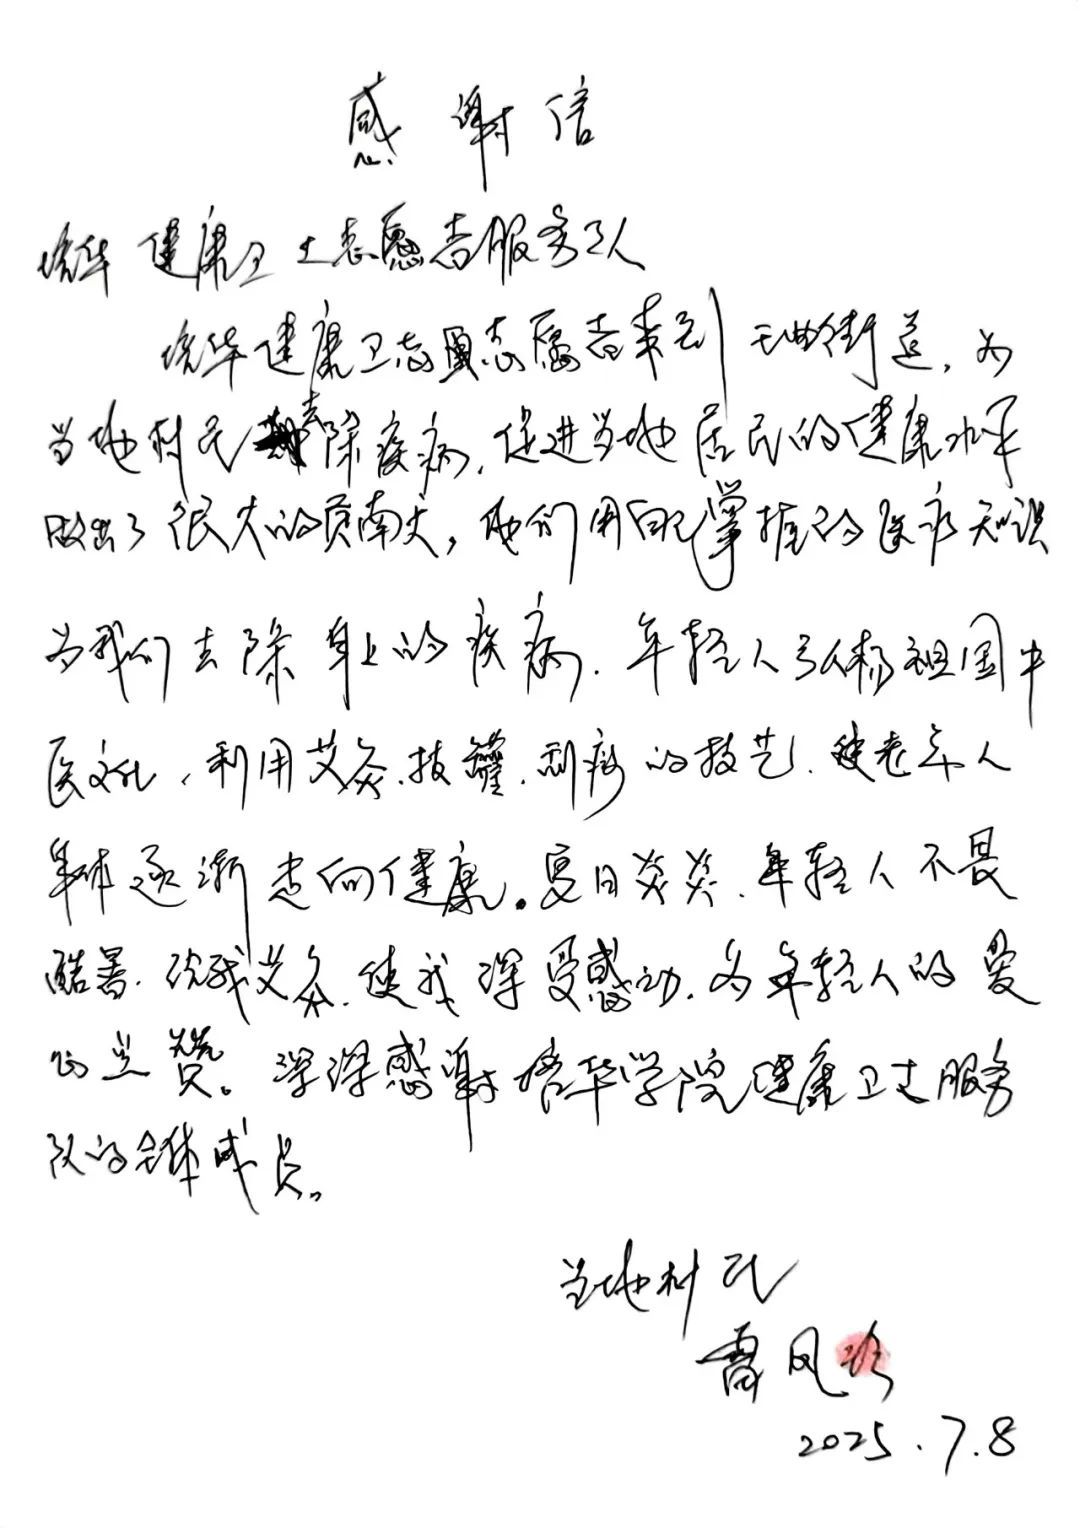 感谢信
培华健康卫士志愿者服务工人
培华健康卫志愿志愿者来到 王曲街道，为
当地村民去除疾病，促进当地居民的健康水平
做出了很大的贡献，他们用自己掌握的医疗知识
为我们去除身上的疾病．年轻人弘扬祖国中
医文化，利用艾灸．拔罐．刮痧的技艺．使老年人
身体逐渐走向健康。夏日炎炎．年轻人不畏
酷暑．给我艾灸．使我深受感动．为年轻人的爱
心点赞。深深感谢培华学院健康卫士服务
队的全体成员。
当地村民
雷凤
2025.7.8